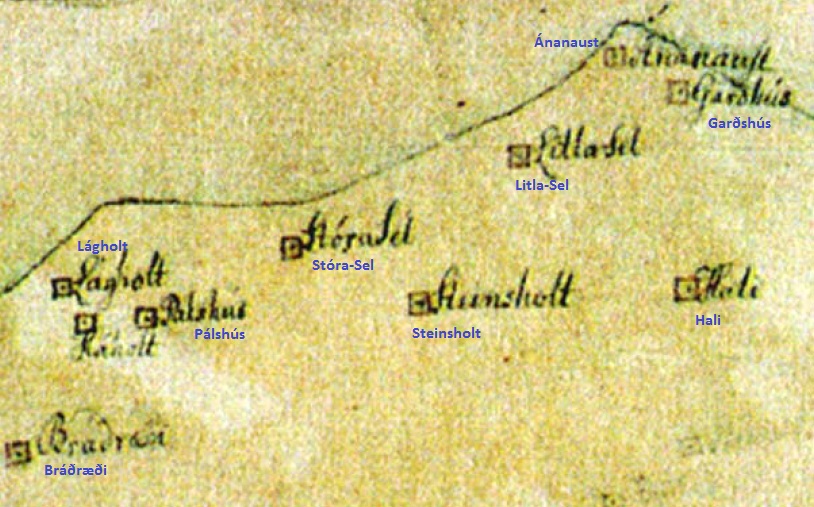 Ánanaust
Ananaust
Garðhús
Garðshús
Litla-Sel
Litla-Sel
Stóra Sel
Stóra-Sel
Lágholt
Lágholt
Steinsholt
Steinsholt
Hali
Hali
Pálshús
Pálshús
Ráholt
Bráðræði
Bráðræði